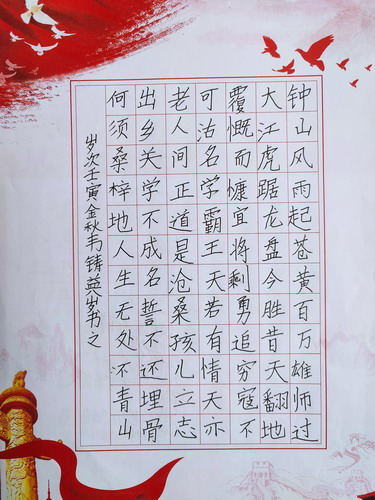 钟山风雨起苍黄百万雄师过
大江虎踞龙盘今胜昔天翻地
覆慨而慷宜将剩勇追穷寇不
可沽名学霸王天若有情天亦
老人间正道是沧桑孩儿立志
出乡关学不成名誓不还埋骨
何须桑梓地人生无处不青山
岁次壬寅金秋韦铸英岁书之